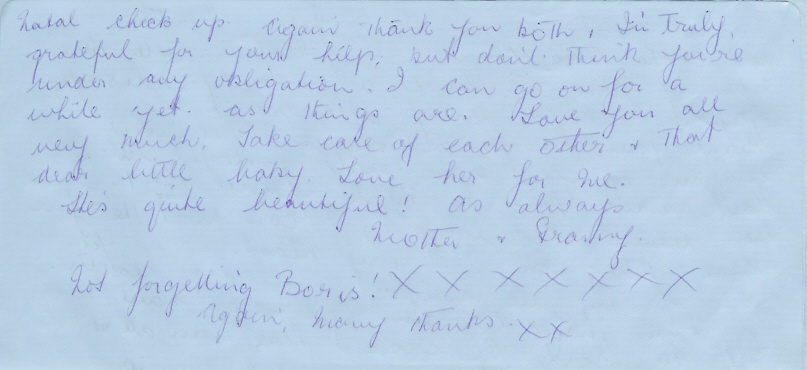 natal check up. Again thank you both, I'm truly,
grateful for your help, but don't think you're
under any obligation. I can go on for a
while yet. as things are. Love you all
very much. Take care of each other & that
dear little baby. Love her for me.
She's quite beautiful! As always
Mother & Granny.
Not forgetting Boris! X X X X X X X
Again, many thanks. X X